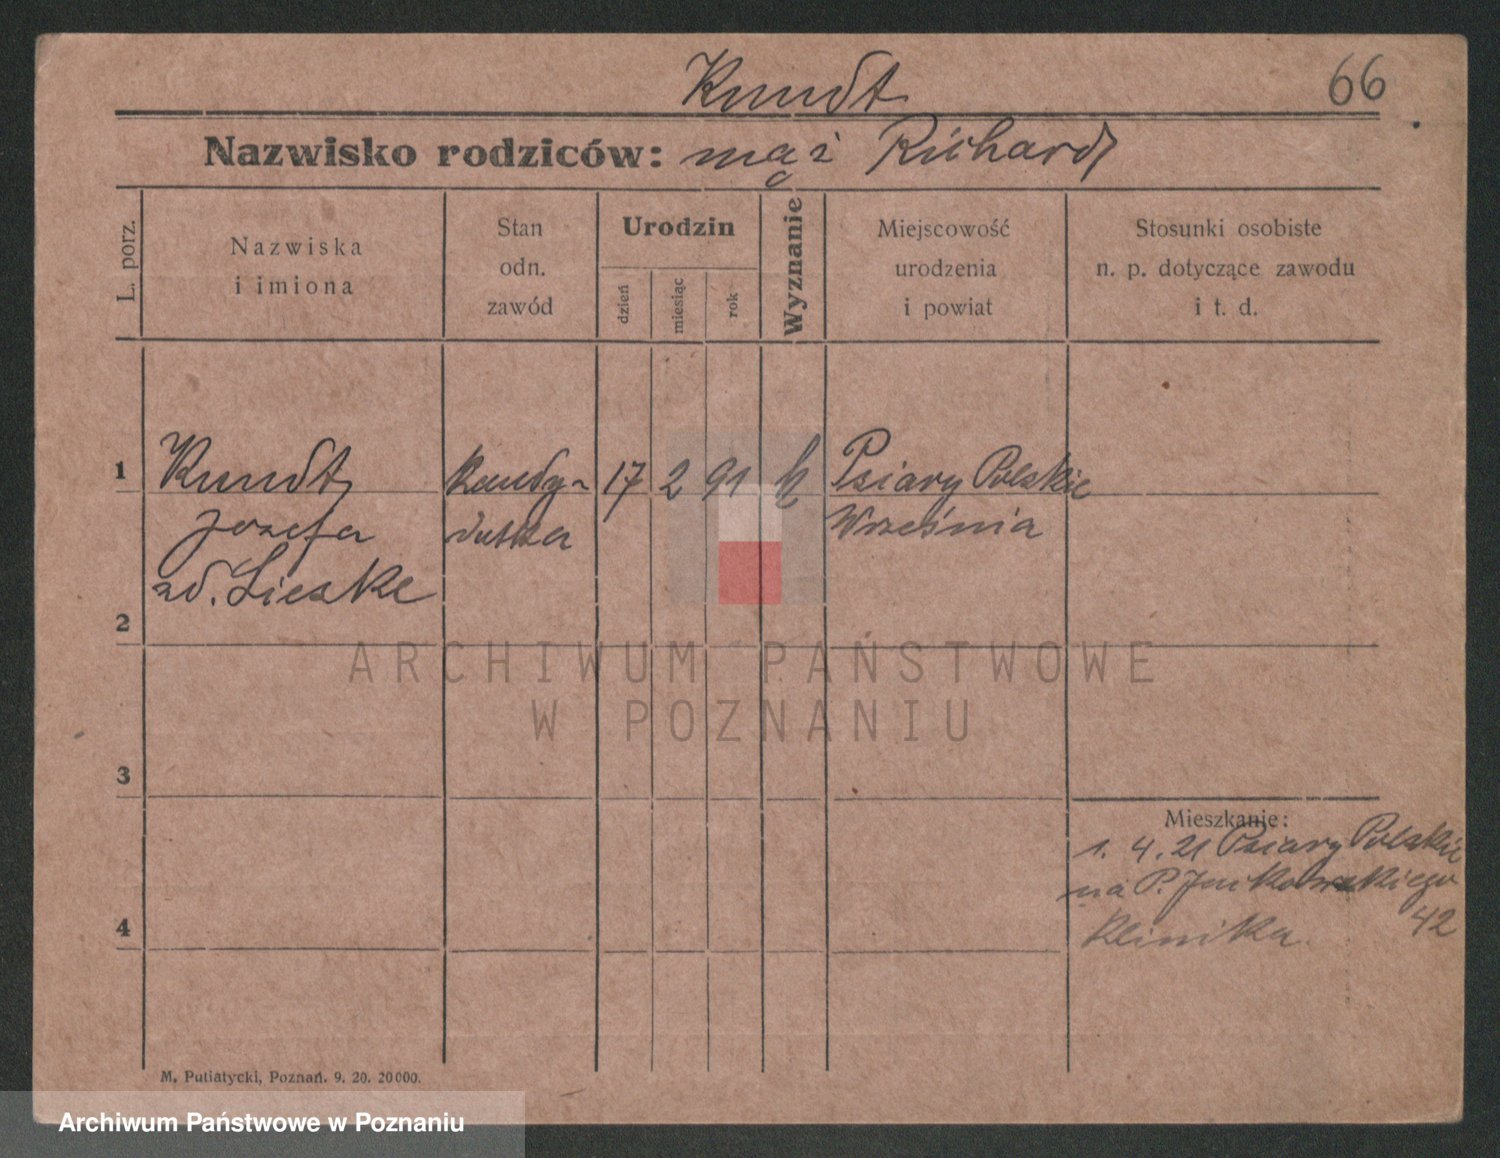 Kundt
66
Nazwisko rodziców: mąż Richard
L. porz.
Nazwiska
i imiona
Stan
odn.
zawód
Urodzin
dzień
miesiąc
rok
Wyznanie
Miejscowość
urodzenia
i powiat
Stosunki osobiste
n. p. dotyczące zawodu
i t. d.
1
Kundt
Kandy-
17
2
91
k
Psiary Polskie
Józefa
datka
Września
zd. Lieske
2
ARCHIWUM PAŃSTWOWE
W POZNANIU
3
Mieszkanie:
1. 4. 21 Psiary Polskie
na P. Jackowskiego
4
Klinika. 42
M. Putiatycki, Poznań. 9. 20. 20000.
Archiwum Państwowe w Poznaniu